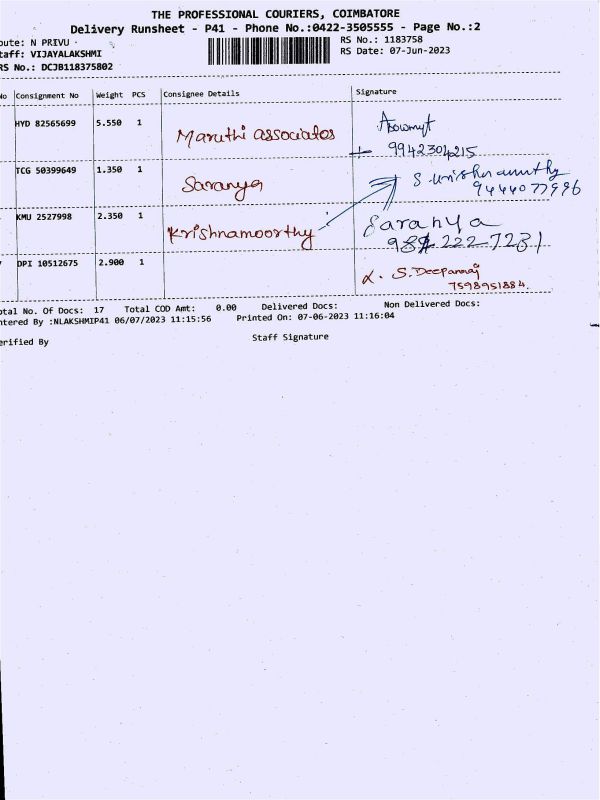 THE PROFESSIONAL COURIERS, COIMBATORE
Delivery Runsheet - P41 - Phone No.:0422-3505555 - Page No.:2
oute: N PRIVU
RS No.: 1183758
taff: VIJAYALAKSHMI
RS Date: 07-Jun-2023
RS No.: DCJB118375802
No Consignment No Weight PCS Consignee Details Signature
HYD 82565699 5.550 1 Maruthi associates
9942304215
TCG 50399649 1.350 1 Saranya
9444077996
KMU 2527998 2.350 1 Krishnamoorthy Saranya
222 7231
DPI 10512675 2.900 1 S. Deepanraj
7598951884
otal No. Of Docs: 17 Total COD Amt: 0.00 Delivered Docs: Non Delivered Docs:
ntered By :NLAKSHMIP41 06/07/2023 11:15:56 Printed On: 07-06-2023 11:16:04
erified By Staff Signature